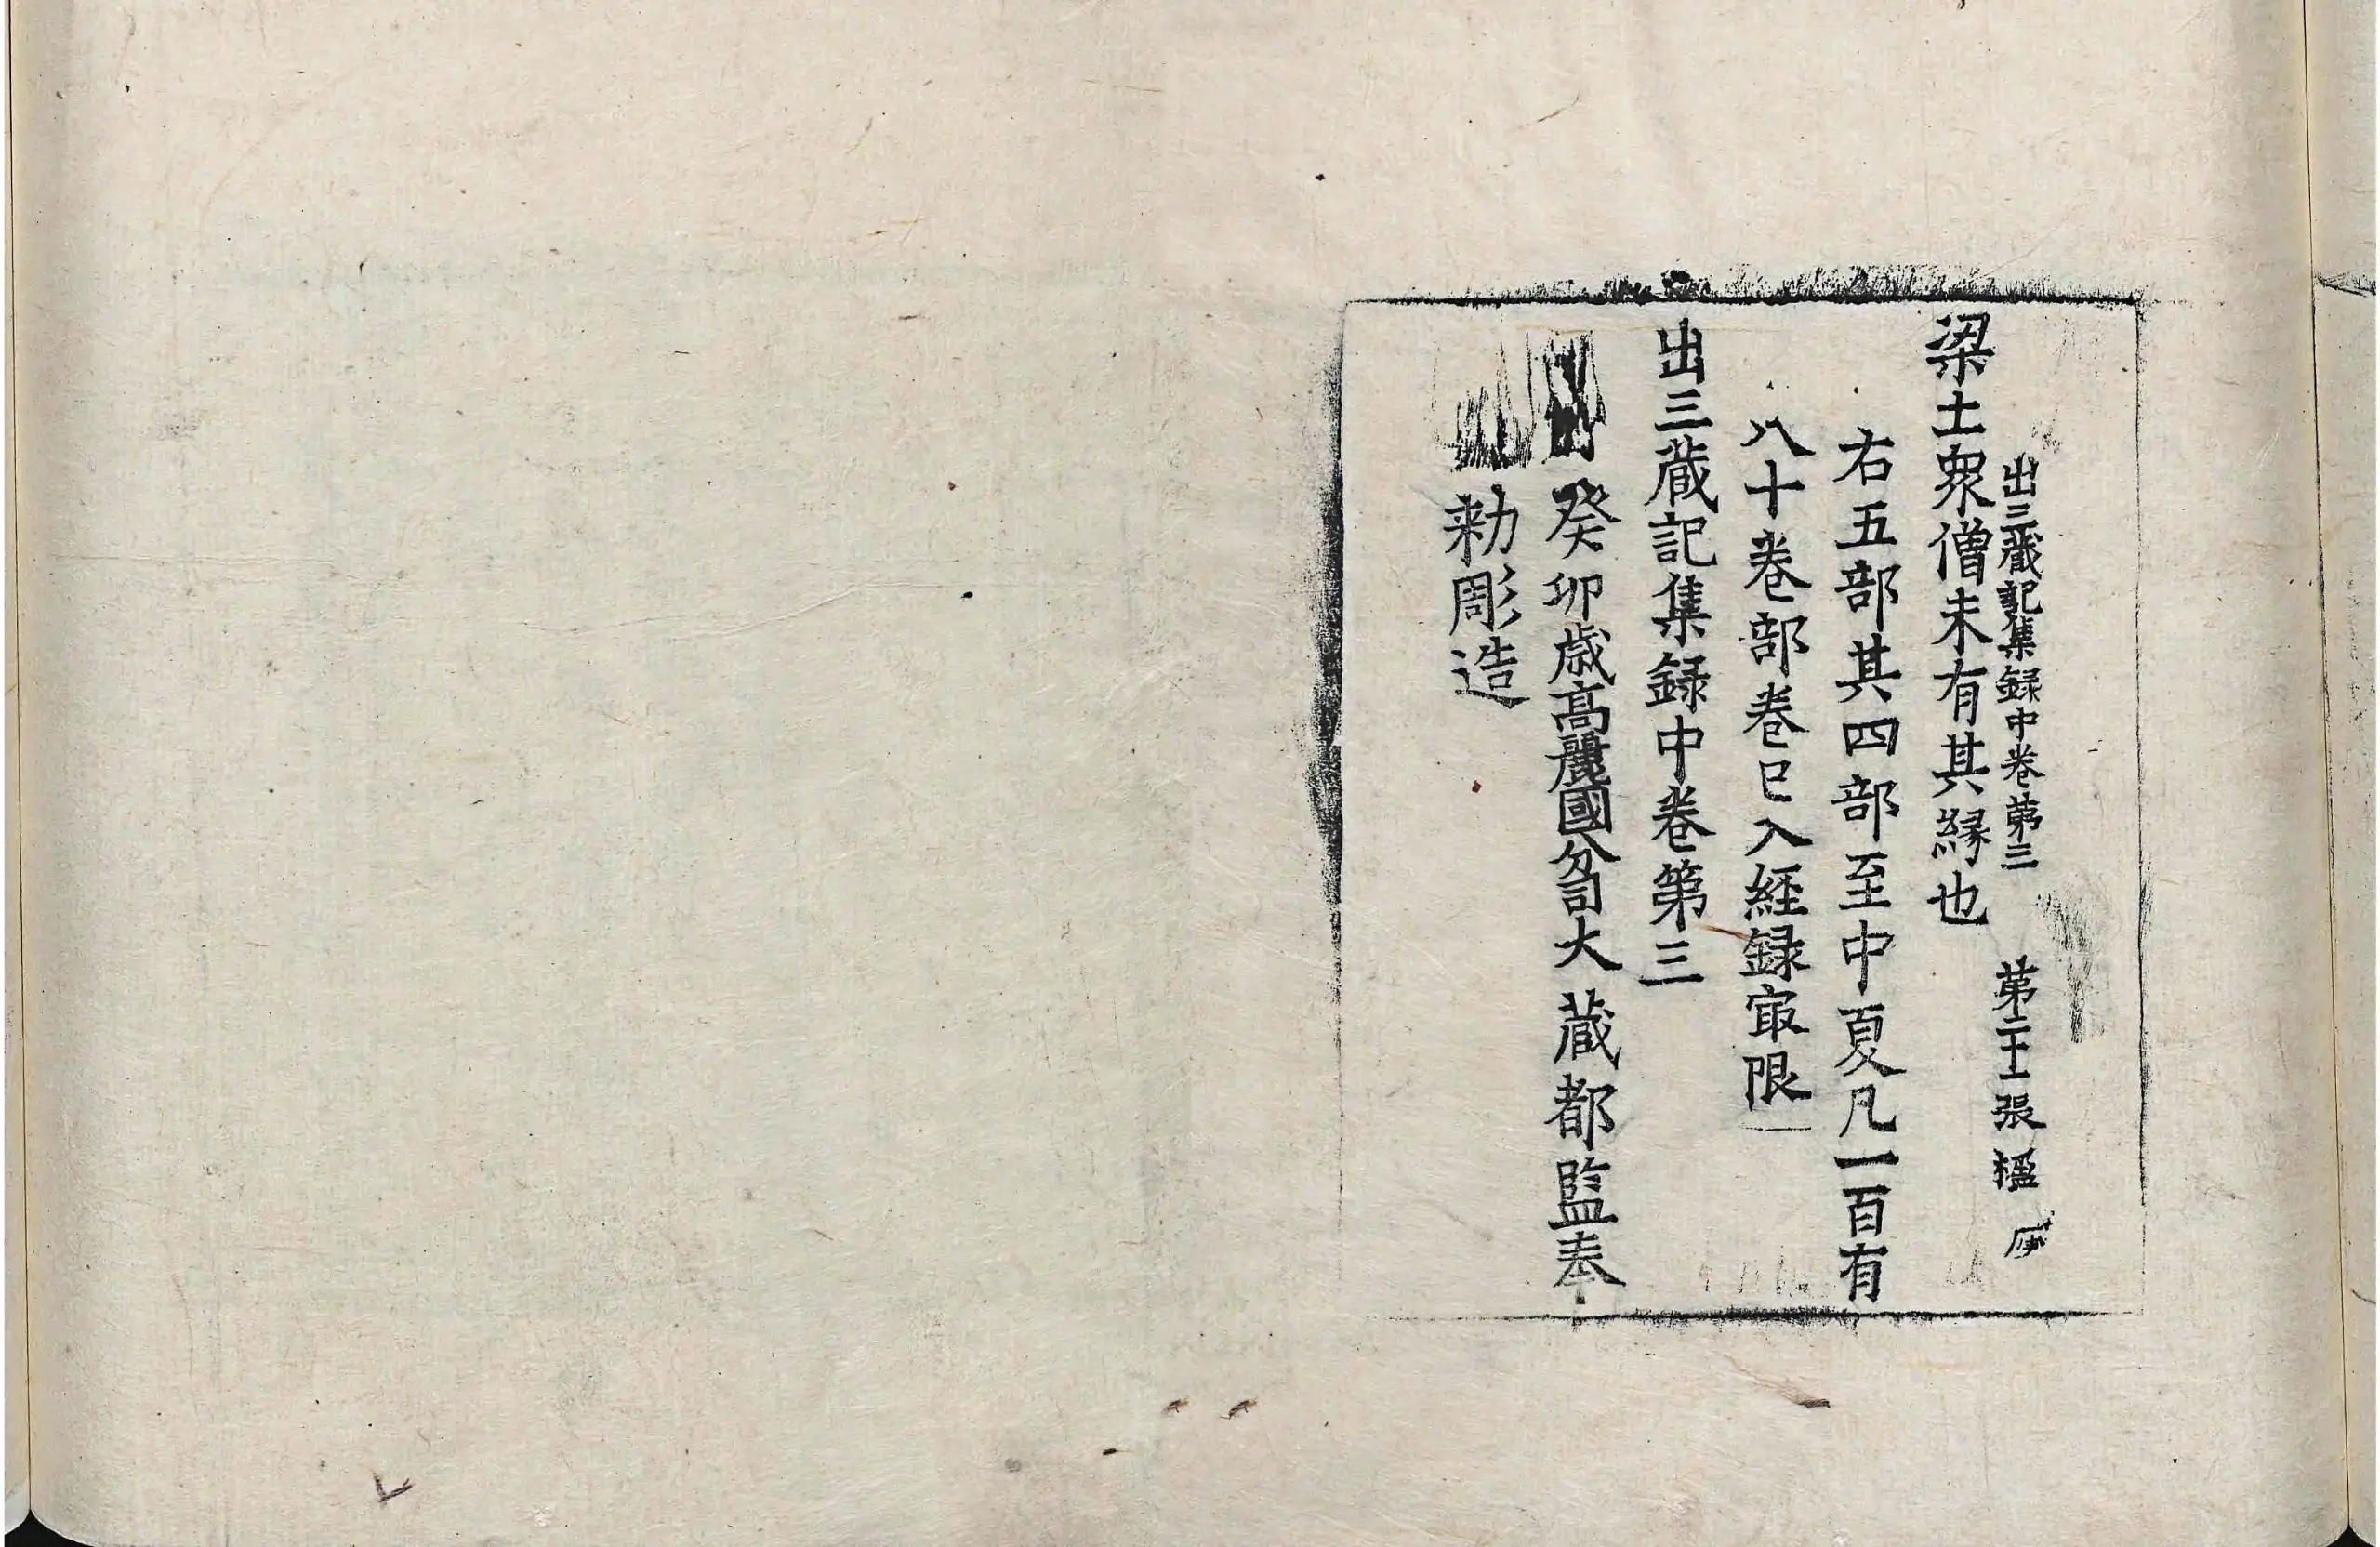 出三藏記集録中卷第三　第二十二張　楹
梁土衆僧未有其縁也
右五部其四部至中夏凡一百有
八十卷部卷已入經録㝡限
出三藏記集録中卷第三
癸卯歳髙麗國分司大藏都監奉
勅彫造